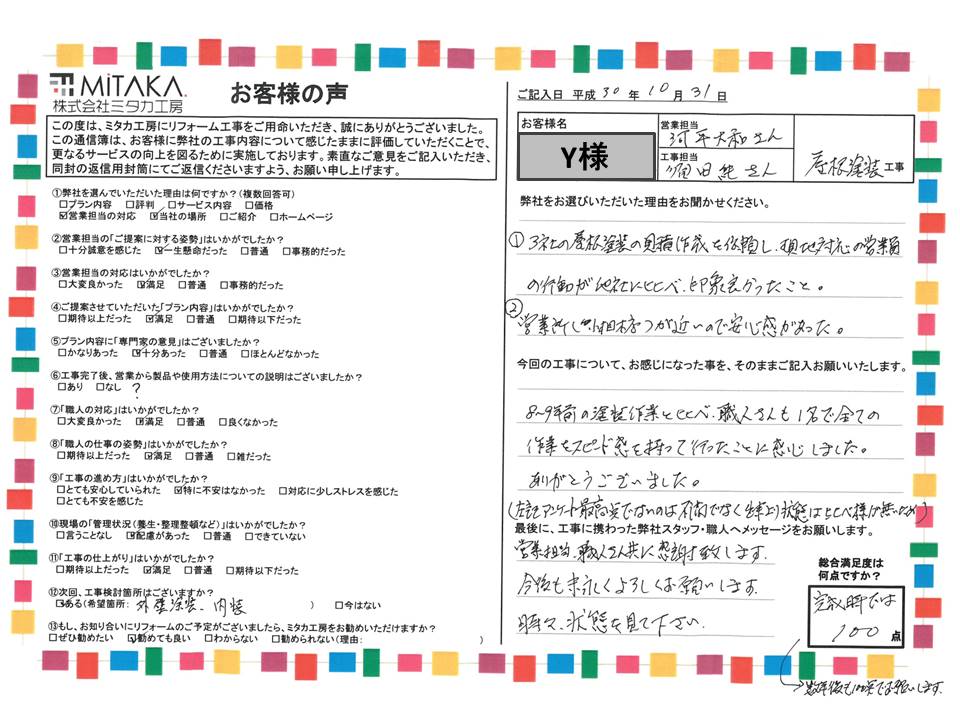 MiTAKA
株式会社ミタカ工房
お客様の声
この度は、ミタカ工房にリフォーム工事をご用命いただき、誠にありがとうございました。
この通信簿は、お客様に弊社の工事内容について感じたままに評価していただくことで、
更なるサービスの向上を図るために実施しております。素直なご意見をご記入いただき、
同封の返信用封筒にてご返信くださいますよう、お願い申し上げます。
①弊社を選んでいただいた理由は何ですか?(複数回答可)
□プラン内容 □評判 □サービス内容 □価格
☑営業担当の対応 ☑当社の場所 □ご紹介 □ホームページ
②営業担当の「ご提案に対する姿勢」はいかがでしたか?
□十分誠意を感じた ☑一生懸命だった □普通 □事務的だった
③営業担当の対応はいかがでしたか?
□大変良かった ☑満足 □普通 □事務的だった
④ご提案させていただいた「プラン内容」はいかがでしたか?
□期待以上だった ☑満足 □普通 □期待以下だった
⑤プラン内容に「専門家の意見」はございましたか?
□かなりあった ☑十分あった □普通 □ほとんどなかった
⑥工事完了後、営業から製品や使用方法についての説明はございましたか?
□あり □なし ?
⑦「職人の対応」はいかがでしたか?
□大変良かった ☑満足 □普通 □良くなかった
⑧「職人の仕事の姿勢」はいかがでしたか?
□期待以上だった ☑満足 □普通 □雑だった
⑨「工事の進め方」はいかがでしたか?
□とても安心していられた ☑特に不安はなかった □対応に少しストレスを感じた
□とても不安を感じた
⑩現場の「管理状況(養生・整理整頓など)」はいかがでしたか?
□言うことなし ☑配慮があった □普通 □できていない
⑪「工事の仕上がり」はいかがでしたか?
□期待以上だった ☑満足 □普通 □期待以下だった
⑫次回、工事検討箇所はございますか?
☑ある(希望箇所: 外壁塗装、内装 ) □今はない
⑬もし、お知り合いにリフォームのご予定がございましたら、ミタカ工房をお勧めいただけますか?
□ぜひ勧めたい ☑勧めても良い □わからない □勧められない(理由: )
ご記入日 平成 30 年 10 月 31 日
お客様名
Y様
営業担当
河平大和さん
工事担当
堀田純さん
屋根塗装工事
弊社をお選びいただいた理由をお聞かせください。
① 3社の屋根塗装の見積作成を依頼し、現地対応の営業員
の行動が他社に比べ、印象良かったこと。
②
営業所が近いので安心感があった。
今回の工事について、お感じになった事を、そのままご記入お願いいたします。
8~9年前の塗装作業と比べ、職人さんも1名で全ての
作業をスピード感を持って行ったことに感心しました。
ありがとうございました。
(左記アンケート最高点でないのは不満でなく
最後に、工事に携わった弊社スタッフ・職人へメッセージをお願いします。
営業担当、職人さん共に感謝致します。
今後も末永くよろしくお願いします。
時々、状態を見て下さい。
総合満足度は
何点ですか?
完成時では
100 点
数年後も100点でお願いします。